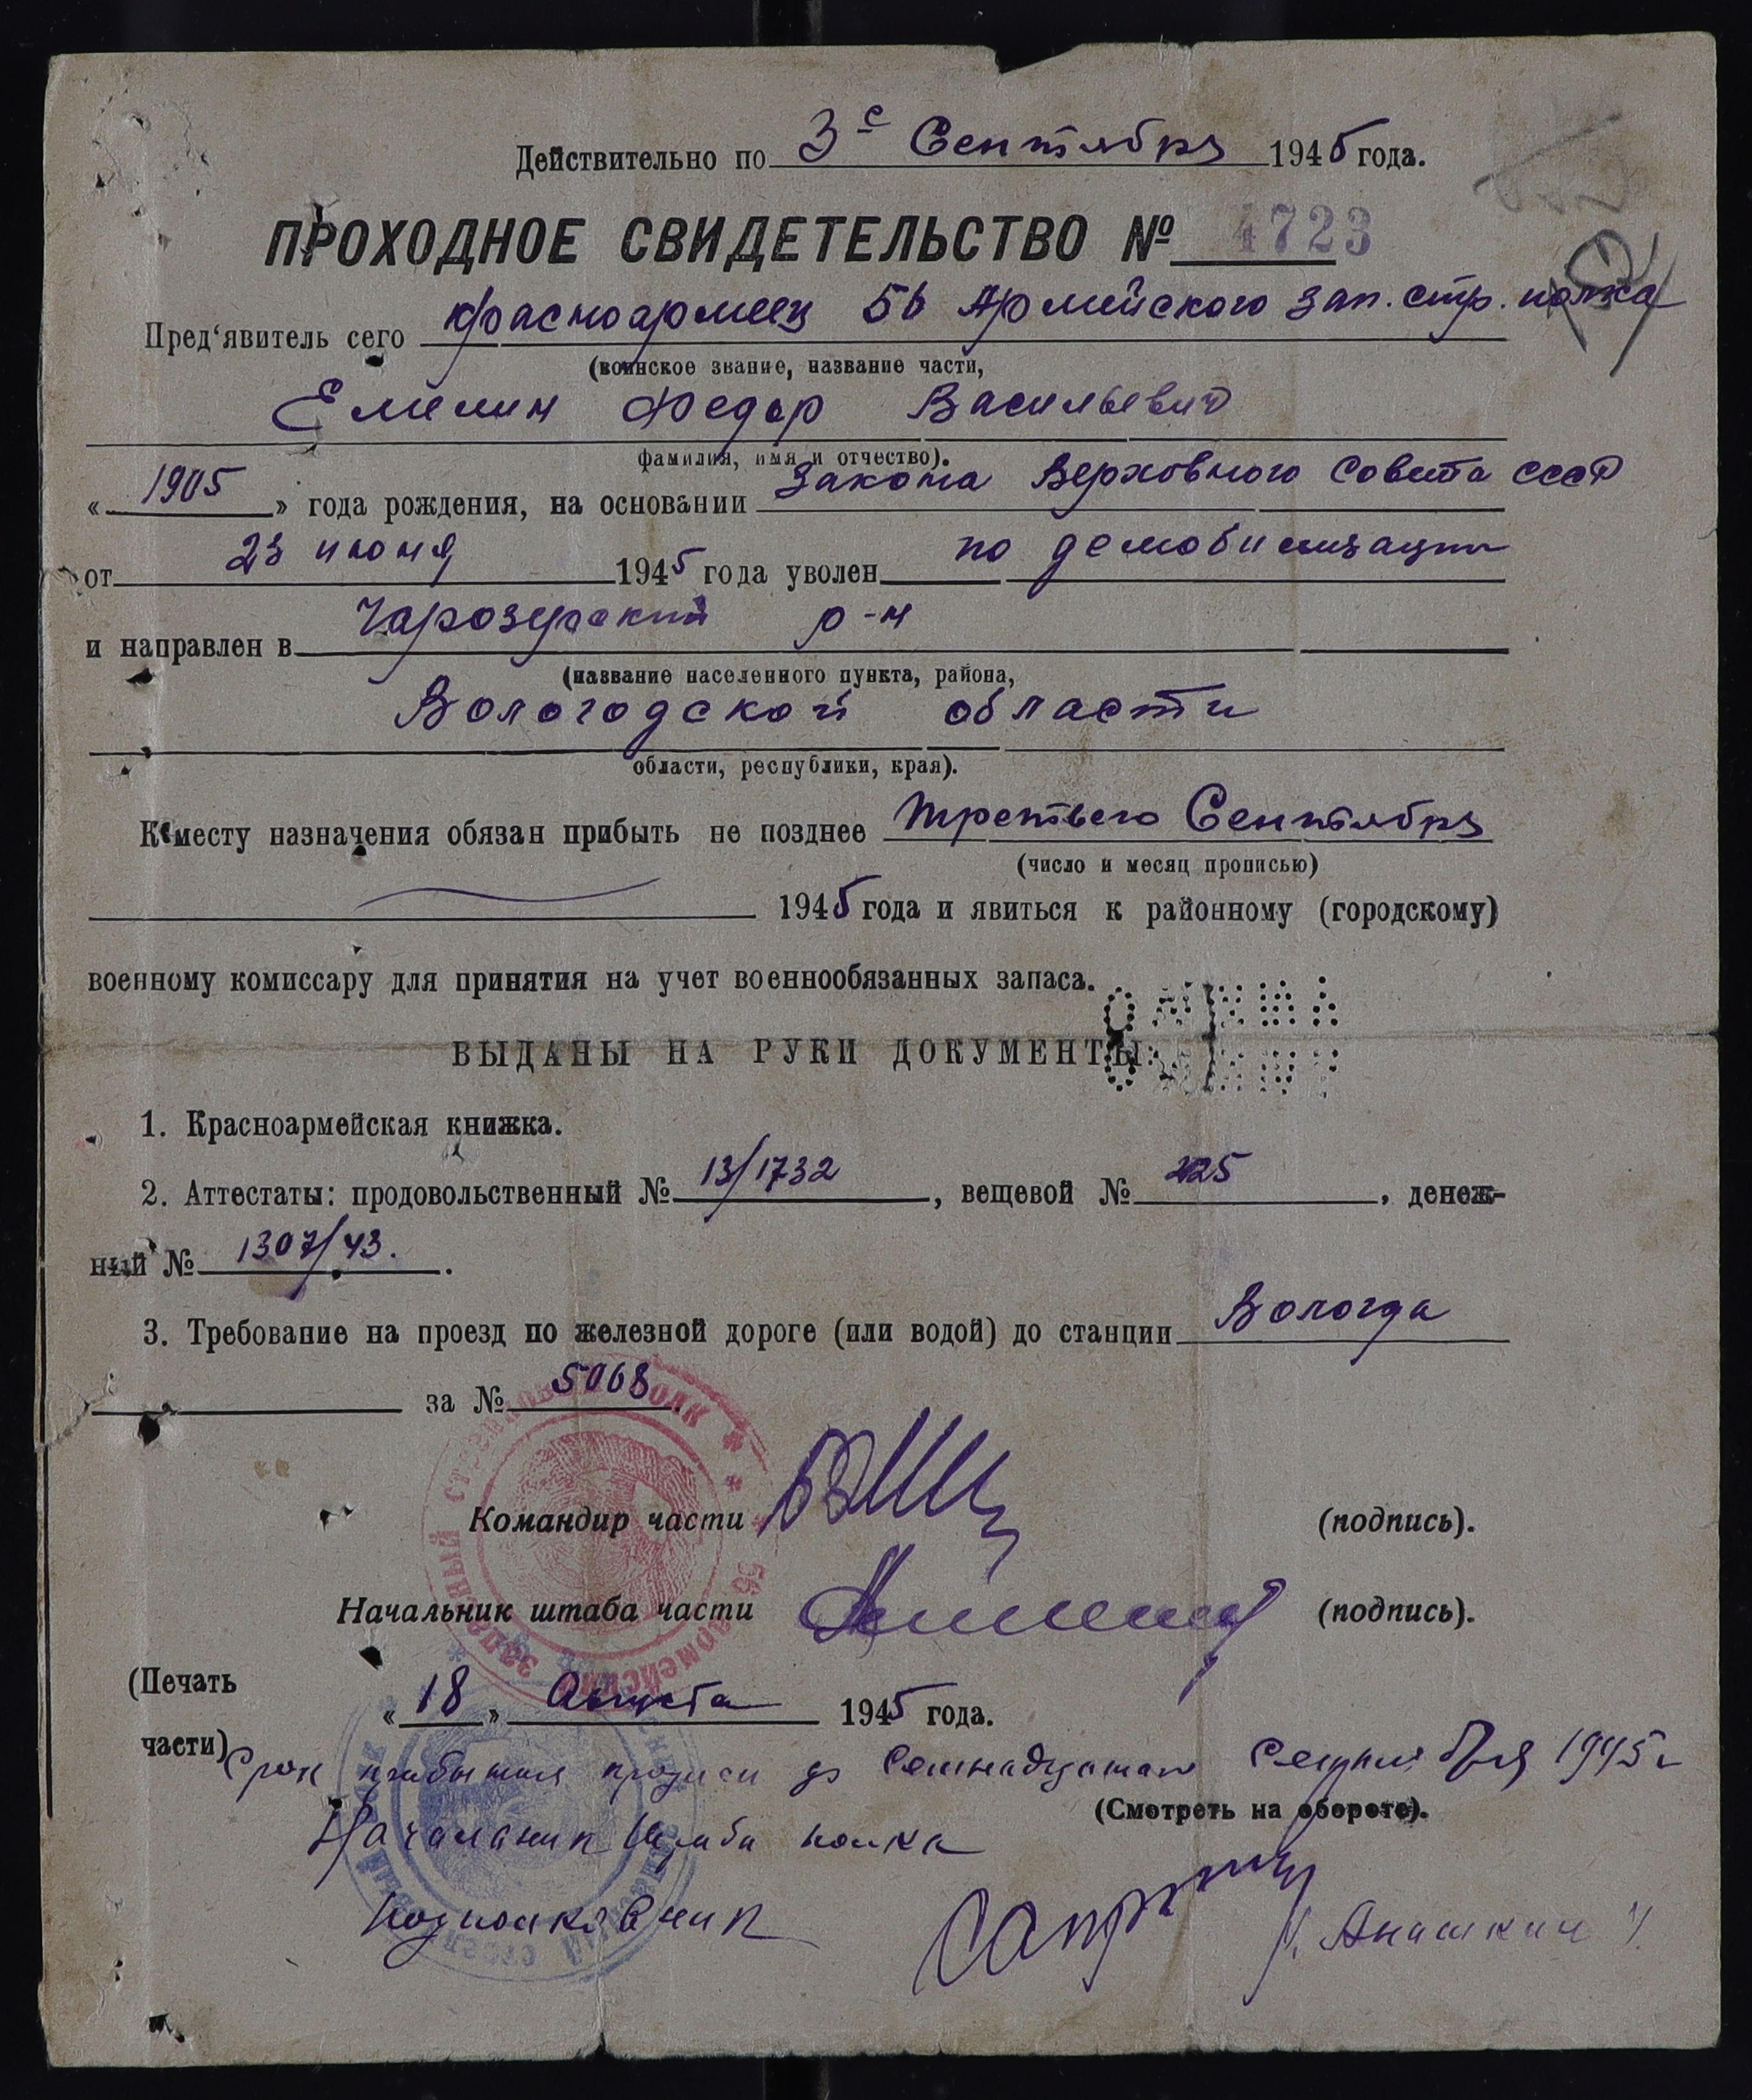 Действительно по 3е Сентября 1945 года.
ПРОХОДНОЕ СВИДЕТЕЛЬСТВО № 4723
Пред‘явитель сего красноармеец 56 Армейского зап. стр. полка
(воинское звание, название части,
Емелин Федор Васильевич
фамилия, имя и отчество).
« 1905 » года рождения, на основании Закона Верховного Совета СССР
от 23 июня 1945 года уволен по демобилизации
и направлен в Чарозерский р-н
(название населенного пункта, района,
Вологодской области
области, республики, края).
К месту назначения обязан прибыть не позднее третьего Сентября
(число и месяц прописью)
1945 года и явиться к районному (городскому)
военному комиссару для принятия на учет военнообязанных запаса.
ВЫДАНЫ НА РУКИ ДОКУМЕНТЫ:
1. Красноармейская книжка.
2. Аттестаты: продовольственный № 13/1732, вещевой № 225, денеж-
ный № 1307/43.
3. Требование на проезд по железной дороге (или водой) до станции Вологда
за № 5068.
Командир части (подпись).
Начальник штаба части (подпись).
(Печать
« 18 » Августа 1945 года.
части)
Срок прибытия продлен до Семнадцатого Сентября 1945 г
(Смотреть на обороте).
Начальник Штаба полка
подполковник /. Анашкин /.